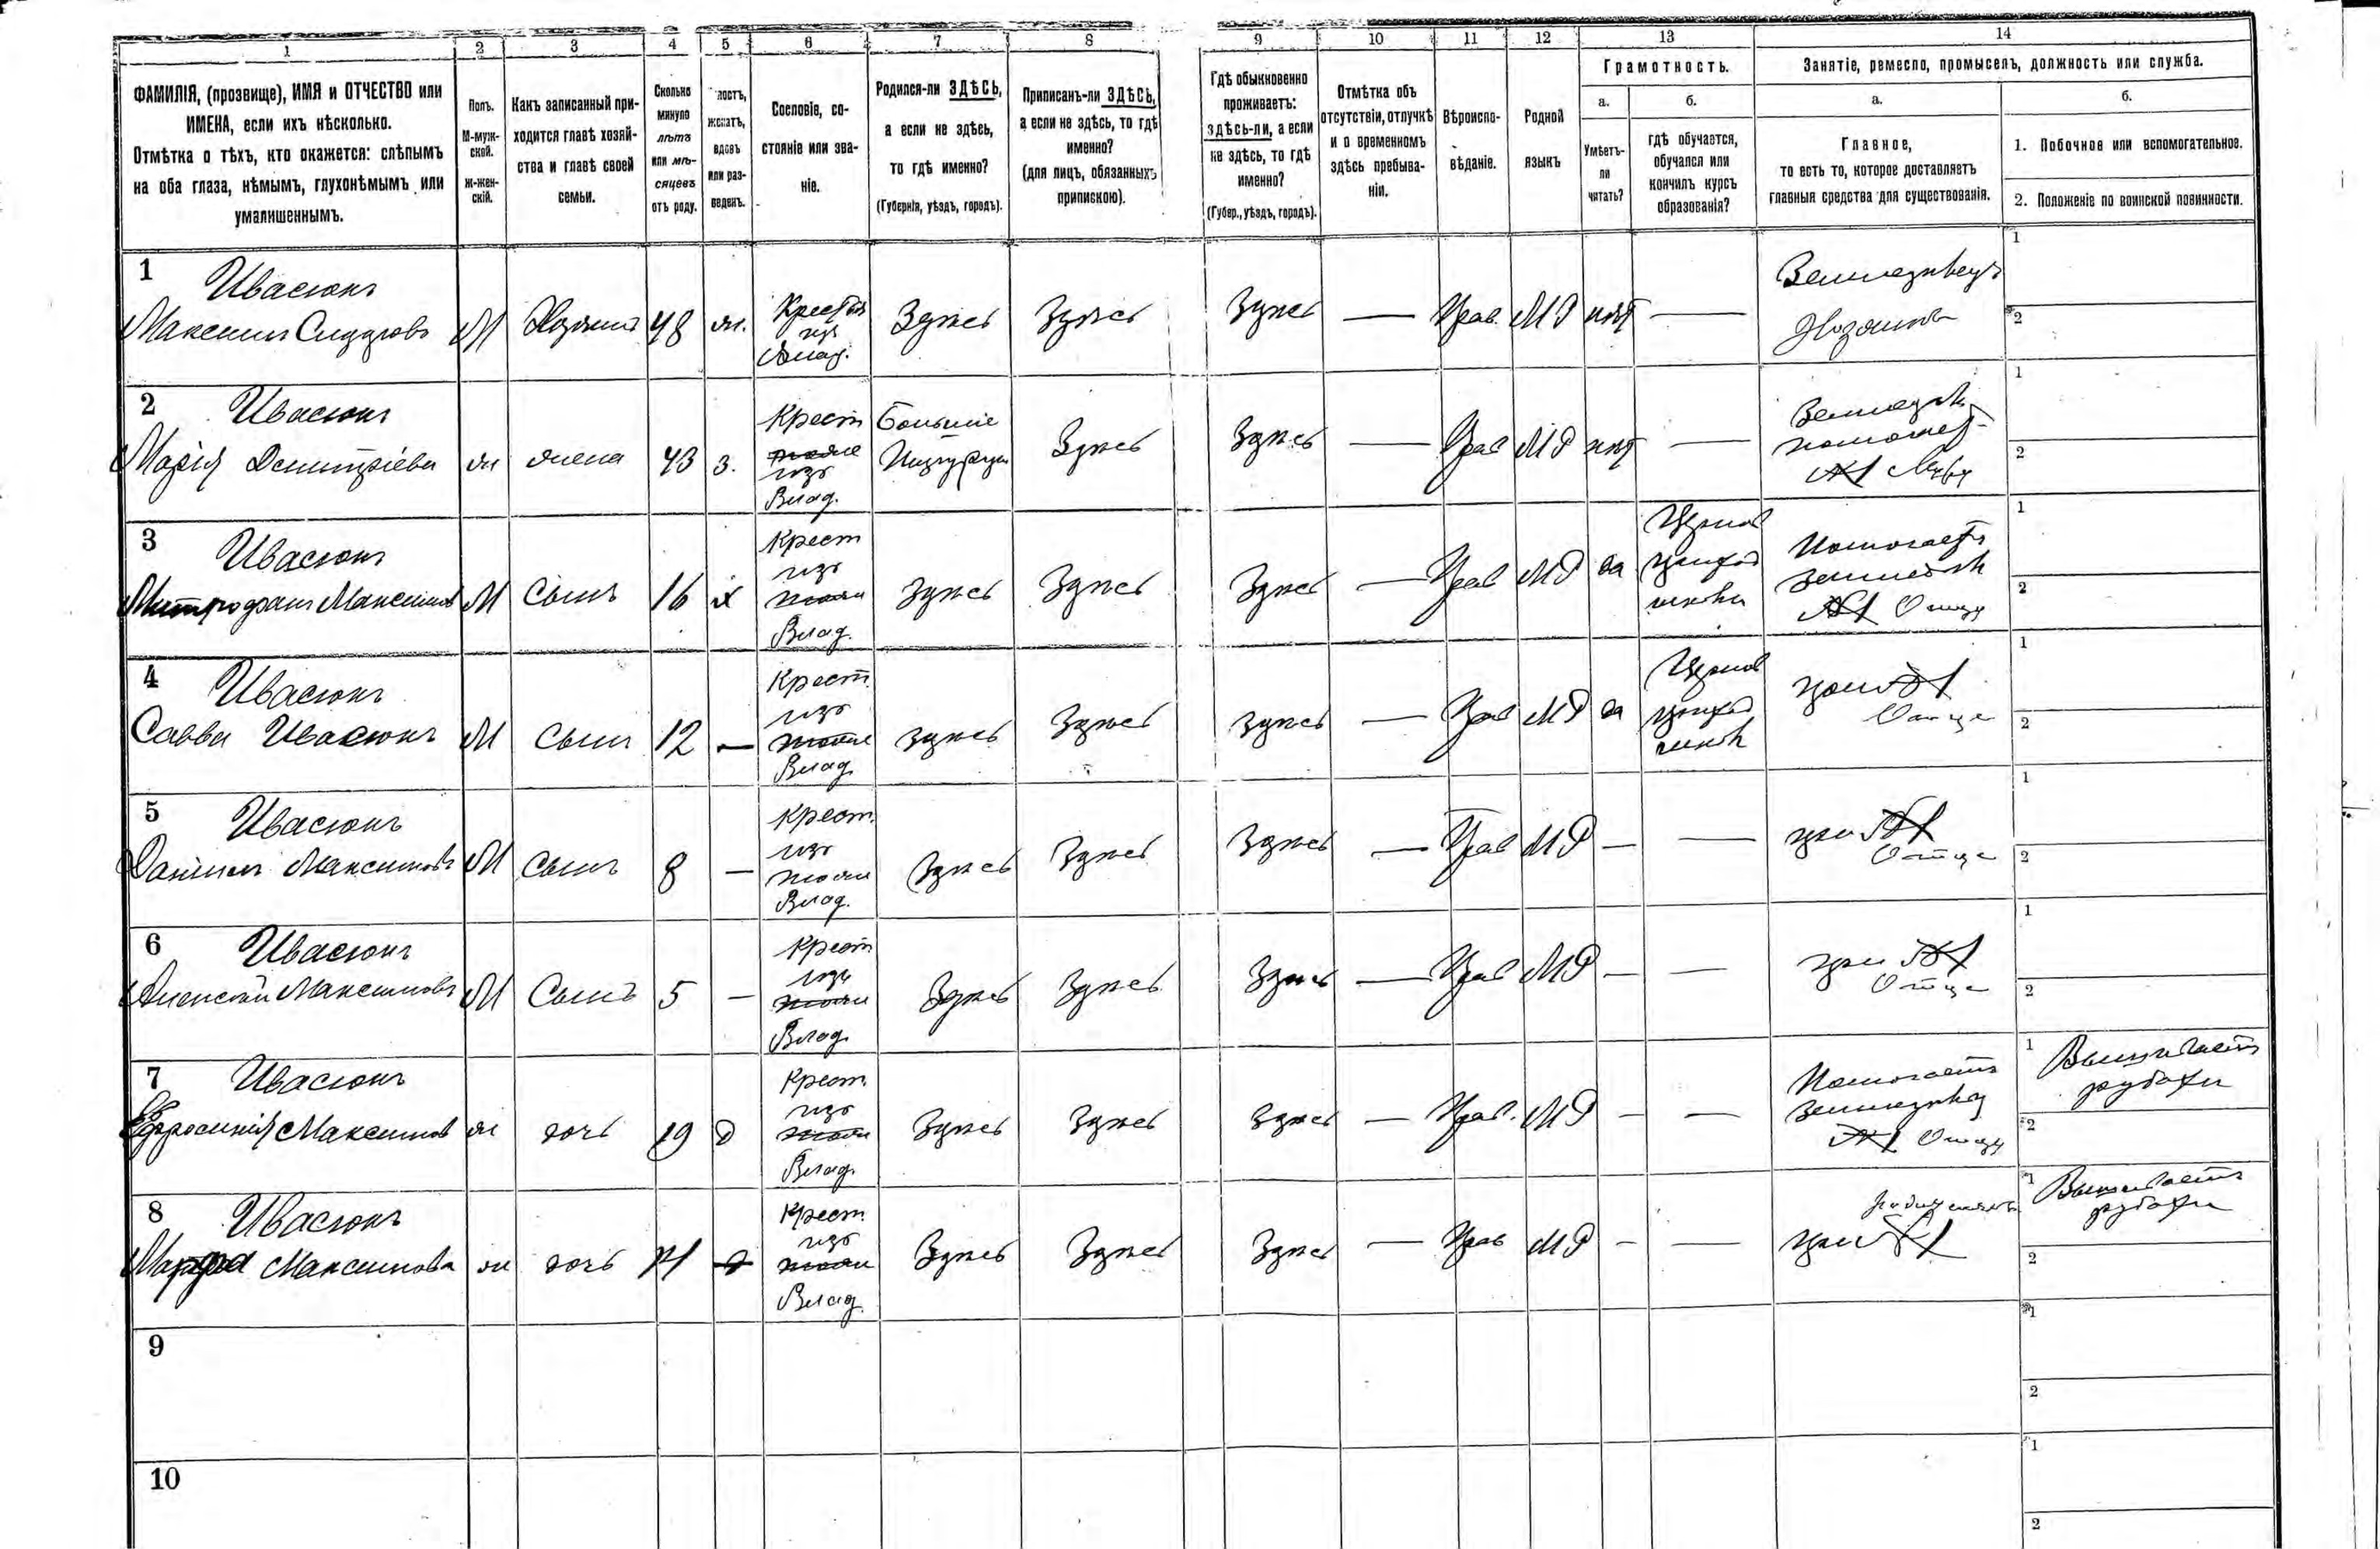 1 2 3 4 5 6 7 8 9 10 11 12 13 14
ФАМИЛІЯ, (прозвище), ИМЯ и ОТЧЕСТВО или
ИМЕНА, если ихъ нѣсколько.
Отмѣтка о тѣхъ, кто окажется: слѣпымъ
на оба глаза, нѣмымъ, глухонѣмымъ или
умалишеннымъ.
Полъ.
М-муж-
ской.
Ж-жен-
скій.
Какъ записанный при-
ходится главѣ хозяй-
ства и главѣ своей
семьи.
Сколько
минуло
лѣтъ
или мѣ-
сяцевъ
отъ роду.
лостъ,
женатъ,
вдовъ
или раз-
веденъ.
Сословіе, со-
стояніе или зва-
ніе.
Родился-ли ЗДѢСЬ,
а если не здѣсь,
то гдѣ именно?
(Губернія, уѣздъ, городъ).
Приписанъ-ли ЗДѢСЬ,
а если не здѣсь, то гдѣ
именно?
(для лицъ, обязанныхъ
припискою).
Гдѣ обыкновенно
проживаетъ:
здѣсь-ли, а если
не здѣсь, то гдѣ
именно?
(Губер., уѣздъ, городъ).
Отмѣтка объ
отсутствіи, отлучкѣ
и о временномъ
здѣсь пребыва-
ніи.
Вѣроиспо-
вѣданіе.
Родной
языкъ
Грамотность.
а.
Умѣетъ-
ли
читать?
б.
гдѣ обучается,
обучался или
кончилъ курсъ
образованія?
Занятіе, ремесло, промыселъ, должность или служба.
а.
Главное,
то есть то, которое доставляетъ
главныя средства для существованія.
б.
1. Побочное или вспомогательное.
2. Положеніе по воинской повинности.
1
Ивасюкъ
Максимъ Сидоровъ
М
Хозяинъ
48
ж.
Крестьян
изъ
Влад.
Здѣсь
Здѣсь
Здѣсь
—
Прав.
МР
нѣт
—
Земледѣлецъ
Хозяинъ
1
2
2
Ивасюкъ
Марія Дмитріева
ж
жена
43
з.
Крест
изъ
Влад.
Большіе
Здѣсь
Здѣсь
—
Прав
МР
нѣт
—
Земледѣл
1
2
3
Ивасюкъ
Митрофанъ Максимов
М
Сынъ
16
х
Крест
изъ
Влад.
Здѣсь
Здѣсь
Здѣсь
—
Прав
МР
да
Церков
приход
школы
Помогаетъ
земледѣл
Отцу
1
2
4
Ивасюкъ
Савва Ивасюкъ
М
Сынъ
12
—
Крест.
изъ
Влад
Здѣсь
Здѣсь
Здѣсь
—
Прав
МР
да
Церков
приход
школѣ
при
Отце
1
2
5
Ивасюкъ
Даніилъ Максимовъ
М
Сынъ
8
—
Крест.
изъ
Влад.
Здѣсь
Здѣсь
Здѣсь
—
Прав
МР
—
—
при
Отце
1
2
6
Ивасюкъ
Алексѣй Максимовъ
М
Сынъ
5
—
Крест.
изъ
Влад.
Здѣсь
Здѣсь
Здѣсь
—
Прав
МР
—
—
при
Отце
1
2
7
Ивасюкъ
Ефросинія Максимов
ж
дочь
19
д
Крест.
изъ
Влад.
Здѣсь
Здѣсь
Здѣсь
—
Прав.
МР
—
—
Помогаетъ
земледѣл
Отцу
1
Вышиваетъ
рубахи
2
8
Ивасюкъ
Марфа Максимова
ж
дочь
Крест.
изъ
Влад.
Здѣсь
Здѣсь
Здѣсь
—
Прав
МР
—
—
при
1
Вышиваетъ
рубахи
2
9
1
2
10
1
2